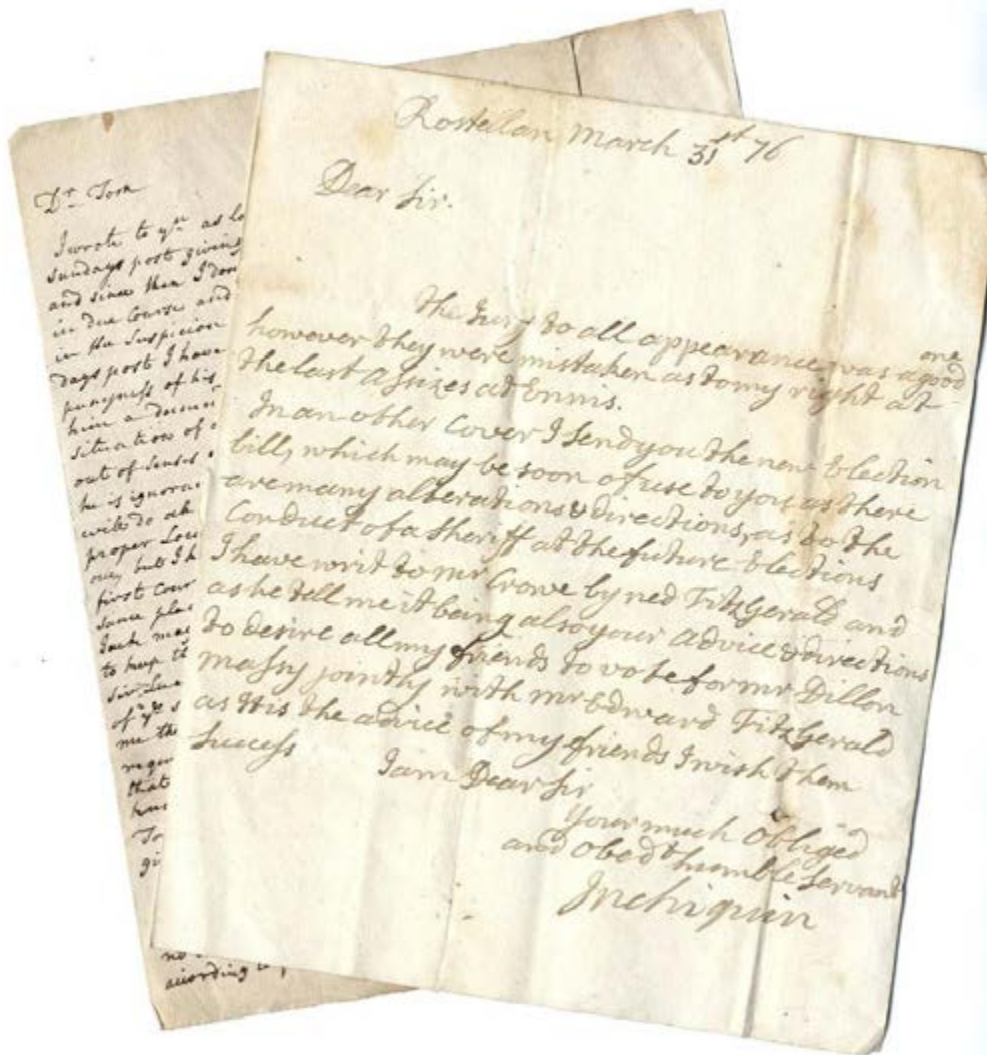 Rostellan March 31st 76
Dear Sir.
The Jury to all appearance was a good one
however they were mistaken as to my right at
the last Assizes at Ennis.
In an other Cover I send you the new Election
bill, which may be soon of use to you as there
are many alterations & directions, as to the
Conduct of a Sheriff at the future Elections
I have writ to mr Crowe by ned FitzGerald and
as he tell me it being also your advice & directions
to desire all my friends to vote for mr Dillon
Massy jointly with mr Edward FitzGerald
as tis the advice of my friends I wish them
Success
I am Dear Sir
Your much Obliged
and obedt humble Servant
Inchiquin
Dr Tom
I wrote to yu as
Sundays post giving
and since then I don
in due Course and
in the Suspicion
days post I have
punyness of his
him a
situation of
out of Senses
he is
will do
proper
one, but I h
first Cour
same pla
Jack
to keep th
Sir
of yr s
me the
that
no
according to